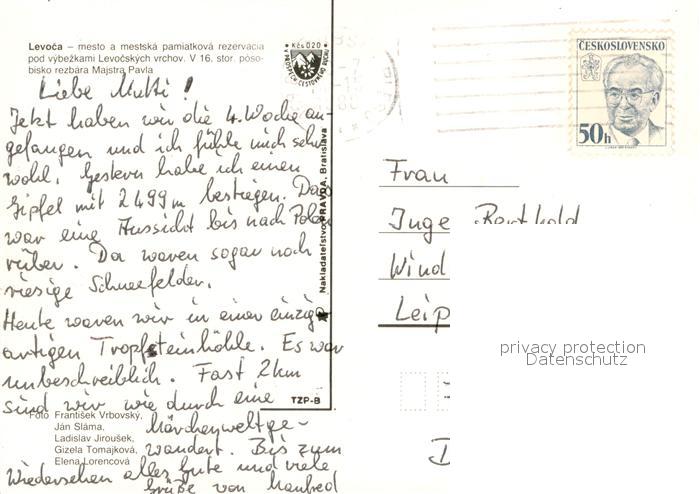 Levoča – mesto a mestská pamiatková rezervácia
pod výbežkami Levočských vrchov. V 16. stor. pôso-
bisko rezbára Majstra Pavla
Kčs 0,20
Liebe Mutti!
Jetzt haben wir die 4. Woche an-
gefangen und ich fühle mich sehr
wohl. Gestern habe ich einen
Gipfel mit 2499m bestiegen. Da
war eine Aussicht bis nach Polen
rüber. Da waren sogar noch
riesige Schneefelder.
Heute waren wir in einer einzig-
artigen Tropfsteinhöhle. Es war
unbeschreiblich. Fast 2km
sind wir wie durch eine
Märchenweltge-
wandert. Bis zum
Wiedersehen alles Gute und viele
Grüße von Manfred
Foto František Vrbovský,
Ján Sláma,
Ladislav Jiroušek,
Gizela Tomajková,
Elena Lorencová
Nakladateľstvo PRAVDA, Bratislava
TZP-B
ČESKOSLOVENSKO
50h
Frau
Inge Berthold
Wind
Leip
privacy protection
Datenschutz